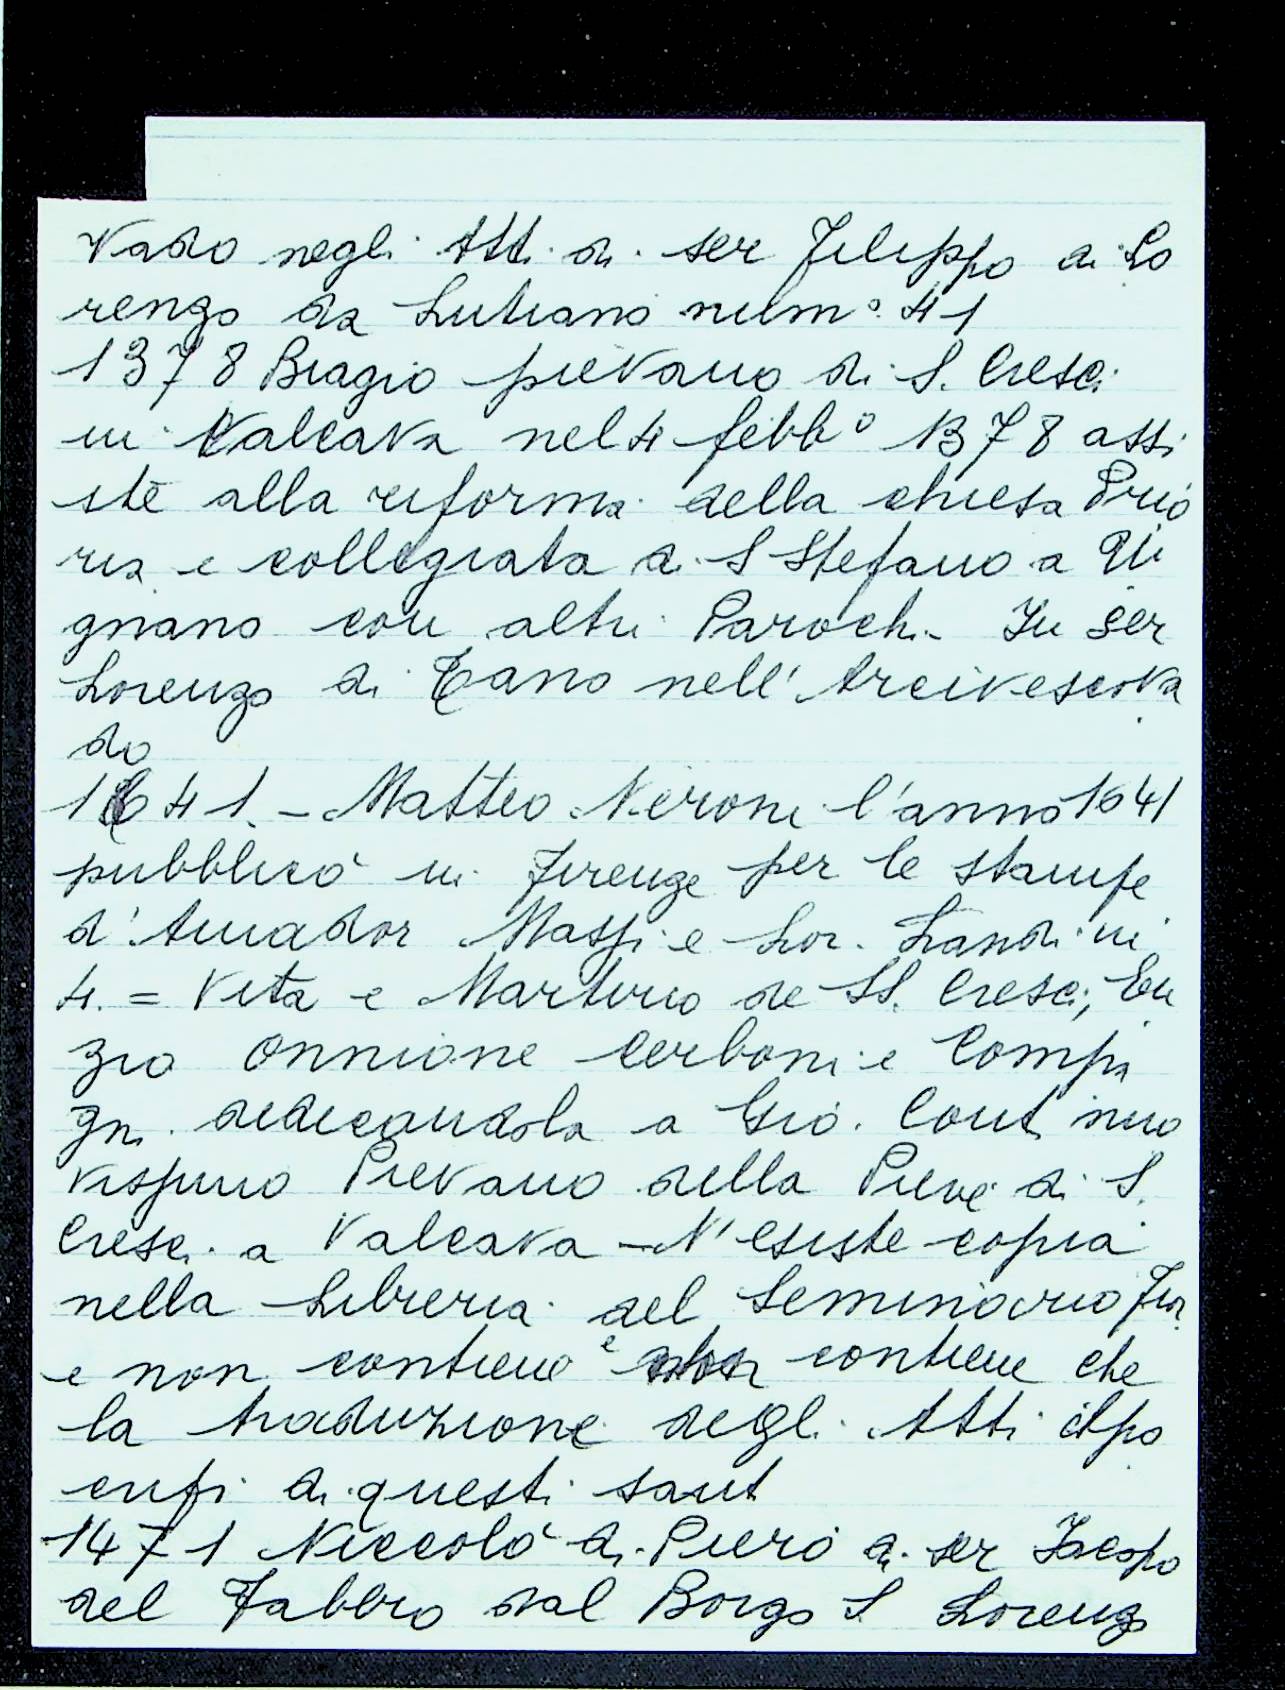 Vado negli Atti di ser Filippo di Lo
renzo da Lutiano nelmº. 41
1378 Biagio pievano di S. Cresci
in Valcava nel 4 febbº 1378 assi
stè alla riforma della chiesa Prio
ria e collegiata di S Stefano a
gnano con altri Parochi - In ser
Lorenzo di Tano nell'Arcivescova
do
1641. - Matteo Neroni l'anno 1641
pubblicò in Firenze per le stampe
d'Amador Massi e Lor. Landi in
4. = Vita e Martirio de SS. Cresci, En
zio Onnione Cerboni e Compa
gni dedicandola a Gio.
Pievano della Pieve di S.
Cresci a Valcava - N'esiste copia
nella Libreria del Seminario Fior.
e non contiene e contiene che
la traduzione degli Atti
di questi santi
1471 Niccolò di Piero di ser Jacopo
del Fabbro dal Borgo S Lorenzo